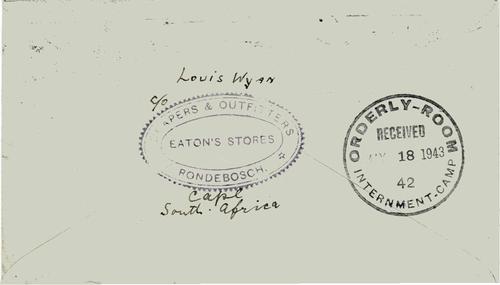 Louis Wyan
c/o
DRAPERS & OUTFITTERS
EATON'S STORES
RONDEBOSCH.
Cape
South. Africa
ORDERLY-ROOM
RECEIVED
18 1943
42
INTERNMENT-CAMP